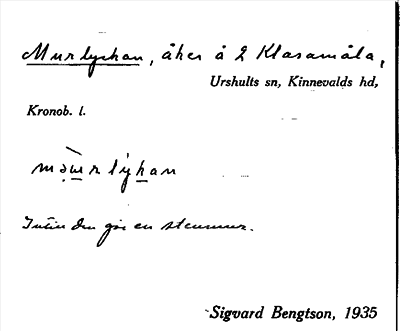 Murlyckan, åker å 2 Klasamåla,
Urshults sn, Kinnevalds hd,
Kronob. l.
Intill den går en stenmur.
Sigvard Bengtson, 1935